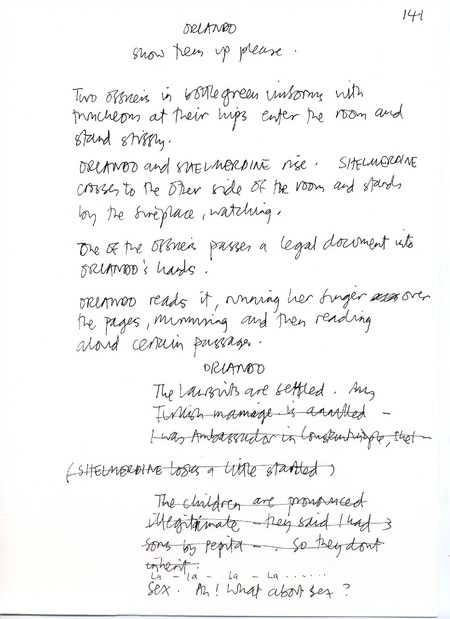 141
ORLANDO
Show them up please.
Two officers in bottlegreen uniforms with
truncheons at their hips enter the room and
stand stiffly.
ORLANDO and SHELMERDINE rise. SHELMERDINE
crosses to the other side of the room and stands
by the fireplace, watching.
One of the officers passes a legal document into
ORLANDO's hands.
ORLANDO reads it, running her finger over
the pages, murmuring and then reading
aloud certain passages.
ORLANDO
The Lawsuits are settled. My
Turkish marriage is anulled -
I was Ambassador in Constantinople, Shel -
(SHELMERDINE looks a little startled)
The children are pronounced
illegitimate - they said I had 3
sons by Pepita - . So they don't
inherit.
La - La - La - La ......
Sex. Ah! What about sex?